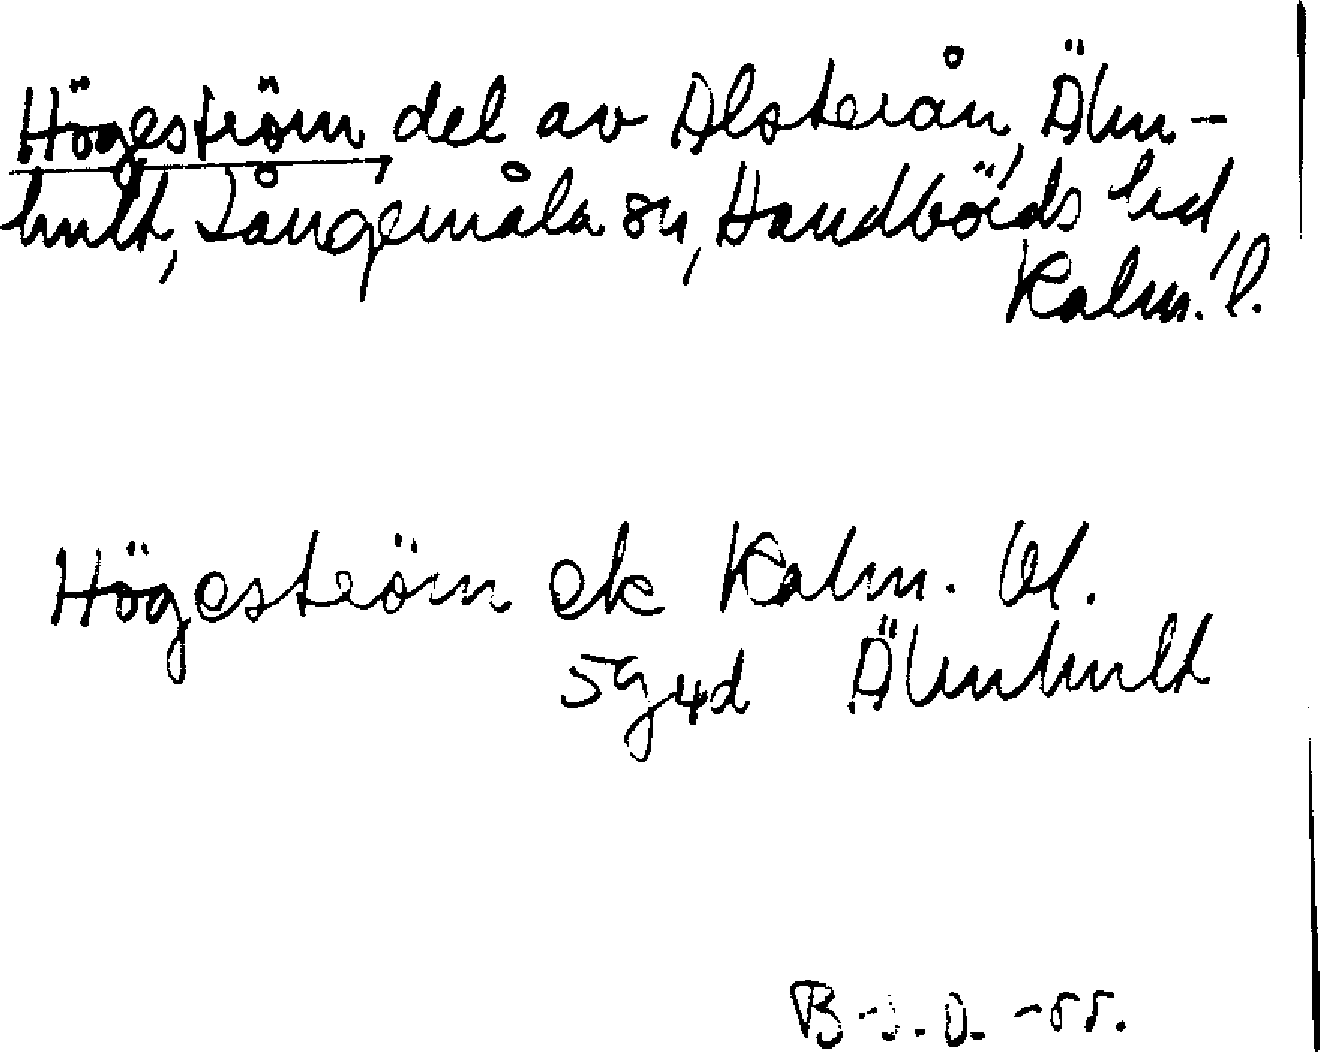 Högeström del av Alsterån, Älm-
hult, Långemåla sn, Handbörds hd,
Kalm. l.
Högeström ek Kalm. l.
5g4d Älmhult
B-J.O. -55.